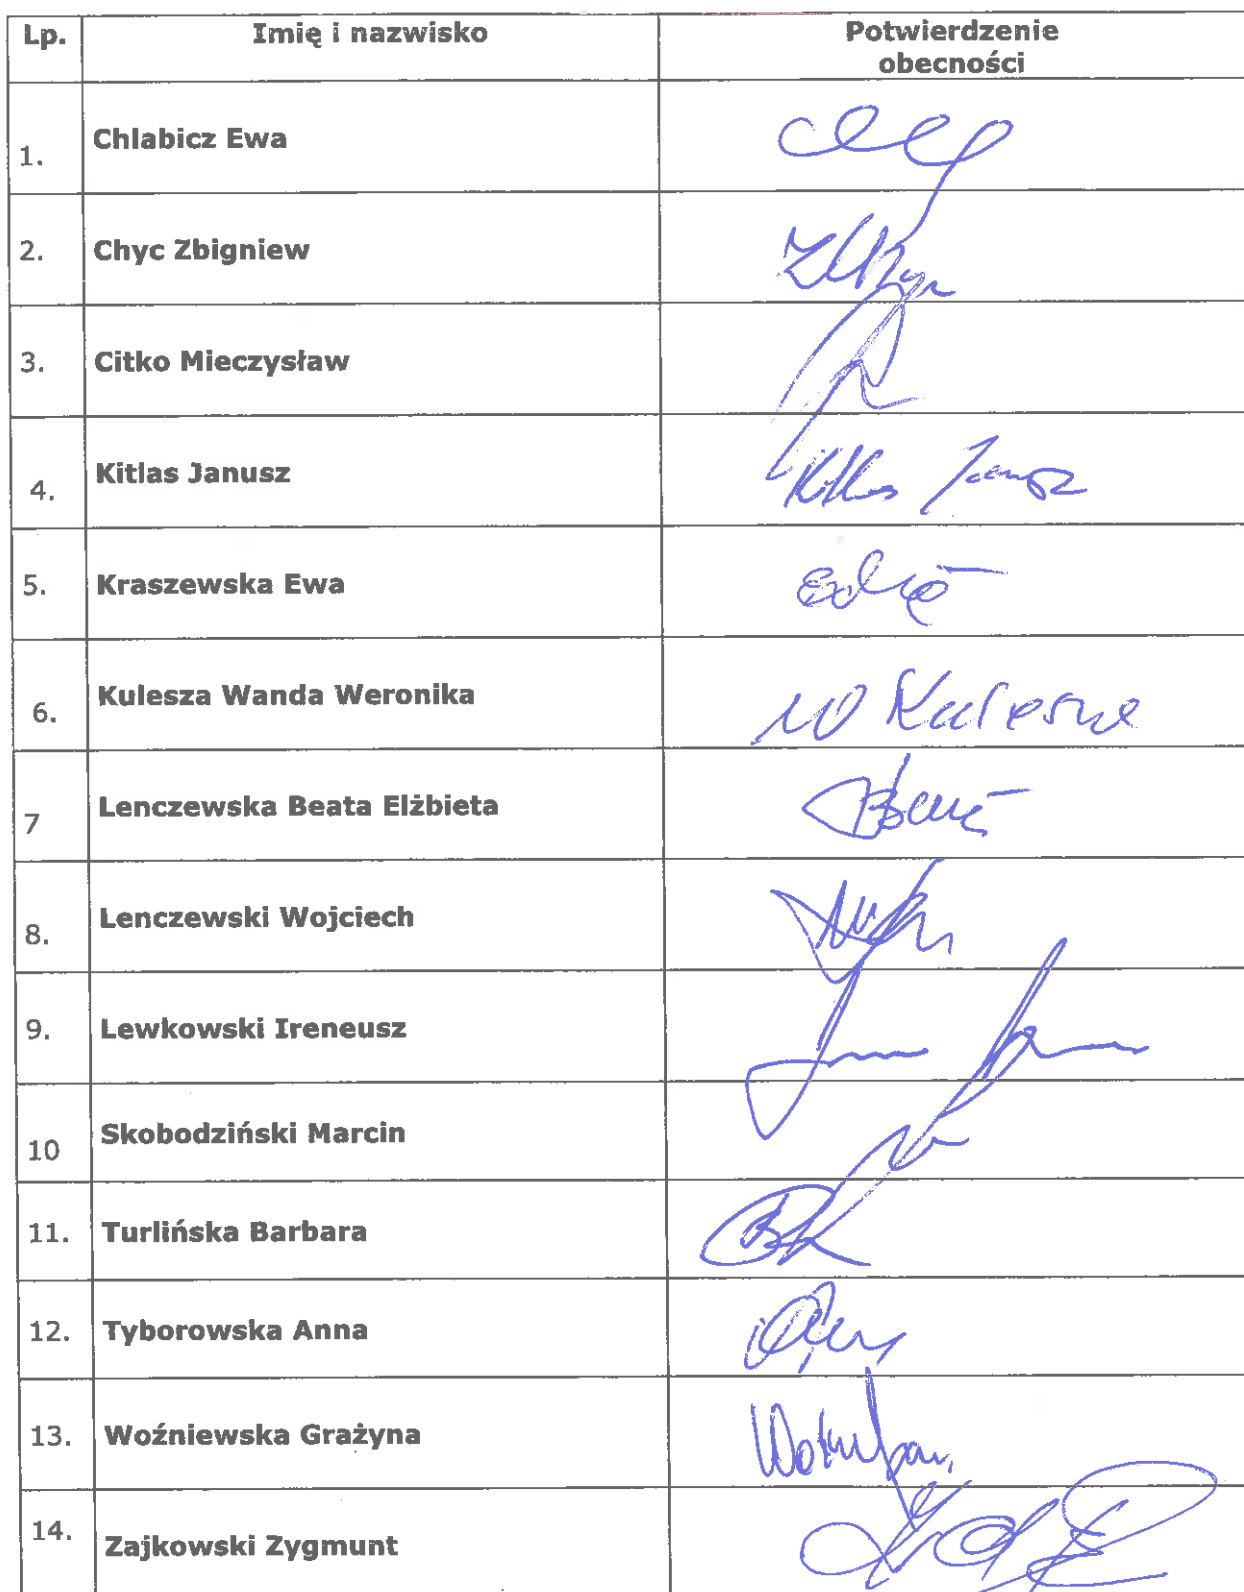 Lp. Imię i nazwisko Potwierdzenie
obecności
1. Chlabicz Ewa
2. Chyc Zbigniew
3. Citko Mieczysław
4. Kitlas Janusz Kitlas Janusz
5. Kraszewska Ewa
6. Kulesza Wanda Weronika W Kulesza
7 Lenczewska Beata Elżbieta
8. Lenczewski Wojciech
9. Lewkowski Ireneusz
10 Skobodziński Marcin
11. Turlińska Barbara
12. Tyborowska Anna
13. Woźniewska Grażyna
14. Zajkowski Zygmunt